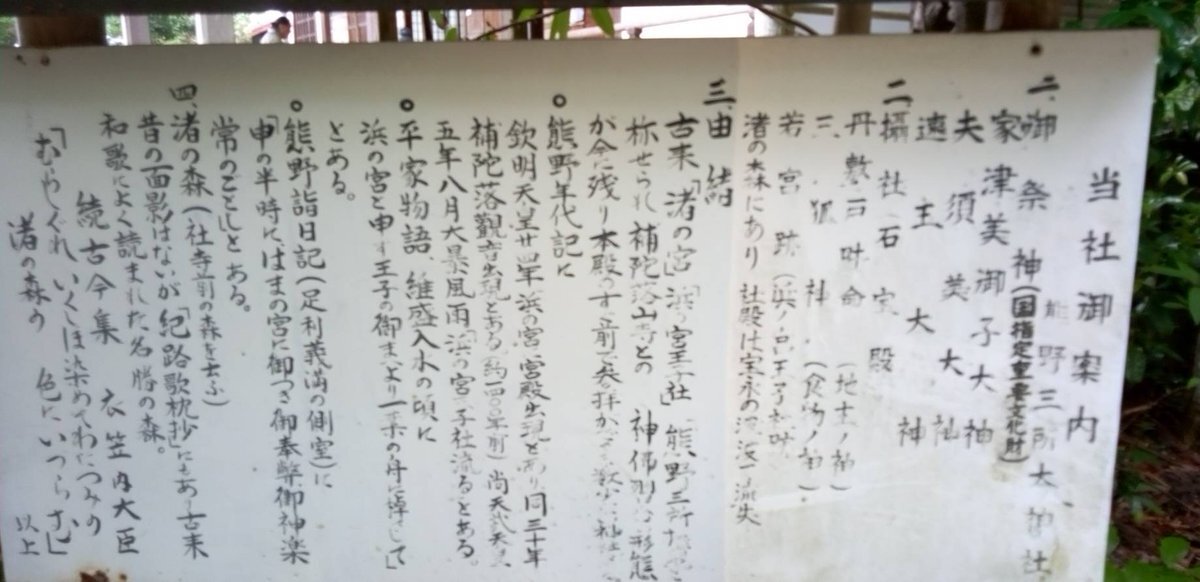 当社御案内
熊野三所大神社
一、御祭神(国指定重要文化財)
家津美御子大神
夫須美大神
速玉大神
二、攝社石宝殿
丹敷戸畔命(地主ノ神)
三狐神(食物ノ神)
若宮跡
渚の森にあり 社殿は宝永の 流失
三、由緒
古来「渚の宮」「浜の宮王子社」「熊野三所権現」と
称せられ 補陀落山寺との 神佛 形態
が今に残り本殿のすぐ前で参拝が
熊野年代記に
欽明天皇廿四年浜の宮宮殿出現とあり同三十年
補陀落観音出現とある(約一四〇〇年前)尚天武天皇
五年八月大暴風雨「浜の宮の子社流るとある。
平家物語、維盛入水の頃に
浜の宮と申す王子の御まへより一葉の舟に棹して」
とある。
熊野詣日記(足利義満の側室)に
「申の半時にはまの宮に御つき御奉幣御神楽
常のごとし」とある。
四、渚の森(社寺前の森を云ふ)
昔の面影はないが「紀路歌枕抄」にもあり古来
和歌によく読まれた名勝の森。
続古今集 衣笠内大臣
「むらしぐれ いくしほ染めてわたつみの
渚の森の 色にいづらむ」
以上